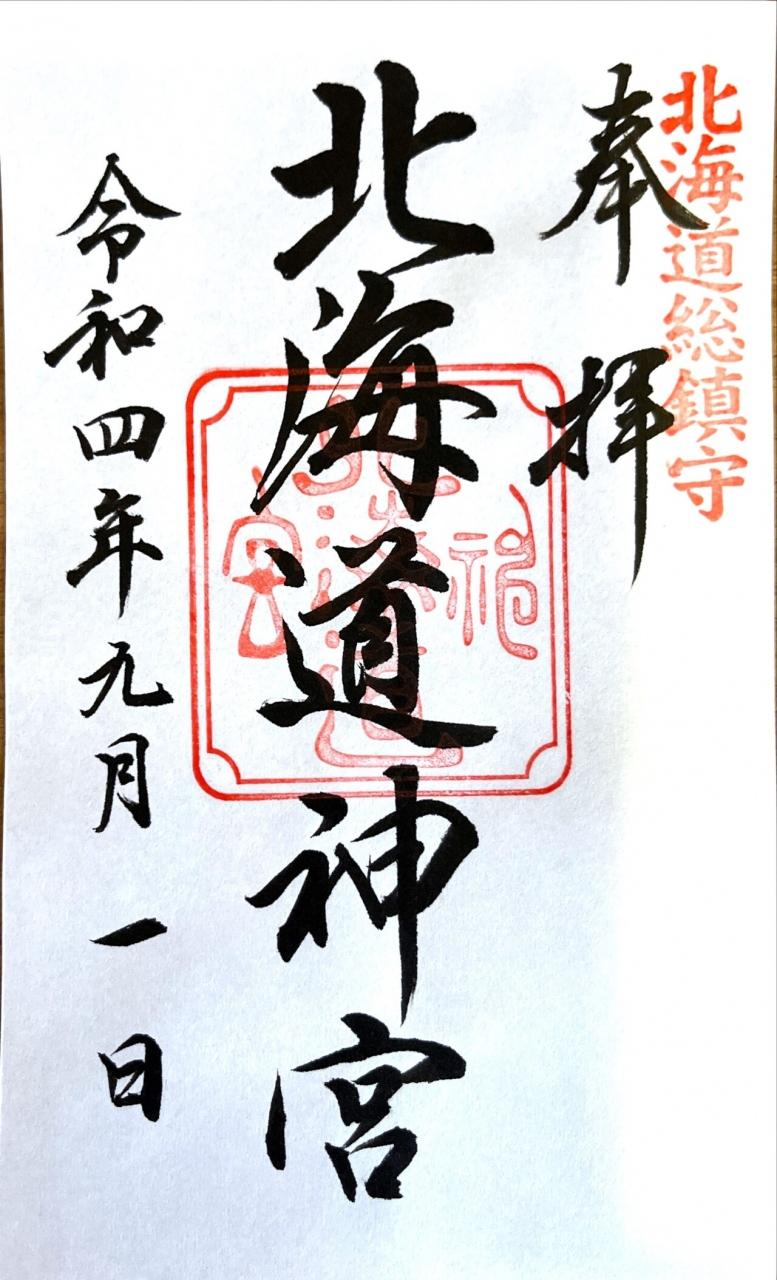 北海道総鎮守
奉拝
北海道神宮
令和四年九月一日